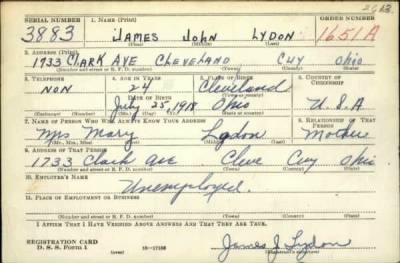 SERIAL NUMBER 1. NAME (Print) ORDER NUMBER
3883 JAMES JOHN LYDON 1651A
(First) (Middle) (Last)
2. ADDRESS (Print)
1733 CLARK AVE CLEVELAND CUY OHIO
(Number and street or R. F. D. number) (Town) (County) (State)
3. TELEPHONE 4. AGE IN YEARS 5. PLACE OF BIRTH 6. COUNTRY OF CITIZENSHIP
NON 24 Cleveland
DATE OF BIRTH
July 25, 1918 Ohio U.S.A
7. NAME OF PERSON WHO WILL ALWAYS KNOW YOUR ADDRESS 8. RELATIONSHIP OF THAT PERSON
Mrs Mary Lydon Mother
(Mr., Mrs., Miss) (First) (Middle) (Last)
9. ADDRESS OF THAT PERSON
1733 Clark ave Cleve Cuy Ohio
(Number and street or R. F. D. number) (Town) (County) (State)
10. EMPLOYER'S NAME
Unemployed.
11. PLACE OF EMPLOYMENT OR BUSINESS
(Number and street or R. F. D. number) (Town) (County) (State)
I AFFIRM THAT I HAVE VERIFIED ABOVE ANSWERS AND THAT THEY ARE TRUE.
REGISTRATION CARD
D. S. S. Form 1 James J Lydon
(Registrant's signature)